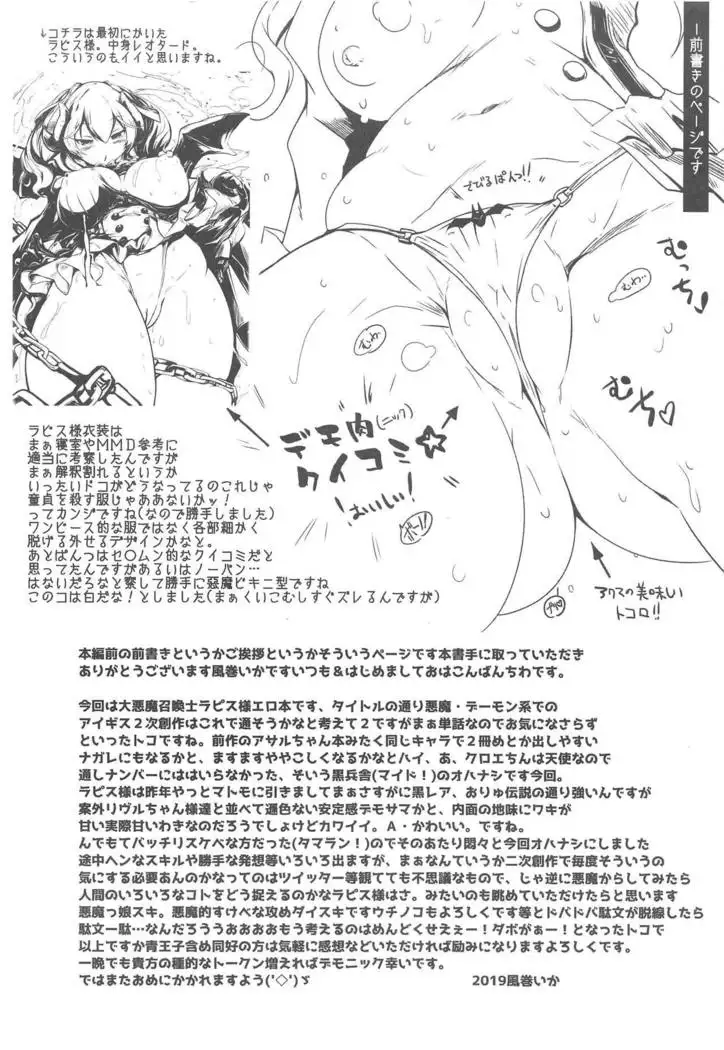 －前書きのページです
↓コチラは最初にかいた
ラピス様。中身レオタード。
こういうのもイイと思いますね。
さでびるぱんつ!!
むっち
むわ
むち
むわ
デモ肉(ニック)
クイコミ☆
おいしい!
アクマの美味しい
トコロ!!
ラピス様衣装は
まぁ寝室やMMD参考に
適当に考察したんですが
まぁ解釈割れるというか
いったいドコがどうなってるのこれじゃ
童貞を殺す服じゃああないかッ!
ってカンジですね(なので勝手しました)
ワンピース的な服ではなく各部細かく
脱げる外せるデザインかなと。
あとぱんつはセ〇ムン的なクイコミだと
思ってたんですがあるいはノーパン…
はないだろなと察して勝手に惡魔ビキニ型ですね
このコは白だな!としました(まぁくいこむしすぐズレるんですが)
本編前の前書きというかご挨拶というかそういうページです本書手に取っていただき
ありがとうございます風巻いかですいつも＆はじめましておはこんばんちわです。
今回は大悪魔召喚士ラピス様エロ本です、タイトルの通り悪魔・デーモン系での
アイギス2次創作はこれで通そうかなと考えて2ですがまぁ単話なのでお気になさらず
といったトコですね。前作のアサルちゃん本みたく同じキャラで2冊めとか出しやすい
ナガレにもなるかと、ますますややこしくなるかなとハイ、あ、クロエちんは天使なので
通しナンバーにははいらなかった、そいう黒兵舎(マイド!)のオハナシです今回。
ラピス様は昨年やっとマトモに引きましてまぁさすがに黒レア、おりゅ伝説の通り強いんですが
案外リヴルちゃん様達と並べて遜色ない安定感デモサマかと、内面の地味にワキが
甘い実際甘いわきなのだろうでしょけどカワイイ。A・かわいい。ですね。
んでもてバッチリスケベな方だった(タマラン!)のでそのあたり悶々と今回オハナシにしました
途中ヘンなスキルや勝手な発想等いろいろ出ますが、まぁなんていうか二次創作で毎度そういうの
気にする必要あんのかなってのはツイッター等観てても不思議なもので、じゃ逆に悪魔からしてみたら
人間のいろいろなコトをどう捉えるのかなラピス様はさ。みたいのも眺めていただけたらと思います
悪魔っ娘スキ。悪魔的すけべな攻めダイスキですウチノコもよろしくです等とドバドバ駄文が脱線したら
駄文一駄…なんだろううおおおおもう考えるのはめんどくせぇえー!ダボがぁー!となったトコで
以上ですか青王子含め同好の方は気軽に感想などいただければ励みになりますよろしくです。
一晩でも貴方の種的なトークン増えればデモニック幸いです。
ではまたおめにかかれますよう('◇')ゞ
2019風巻いか